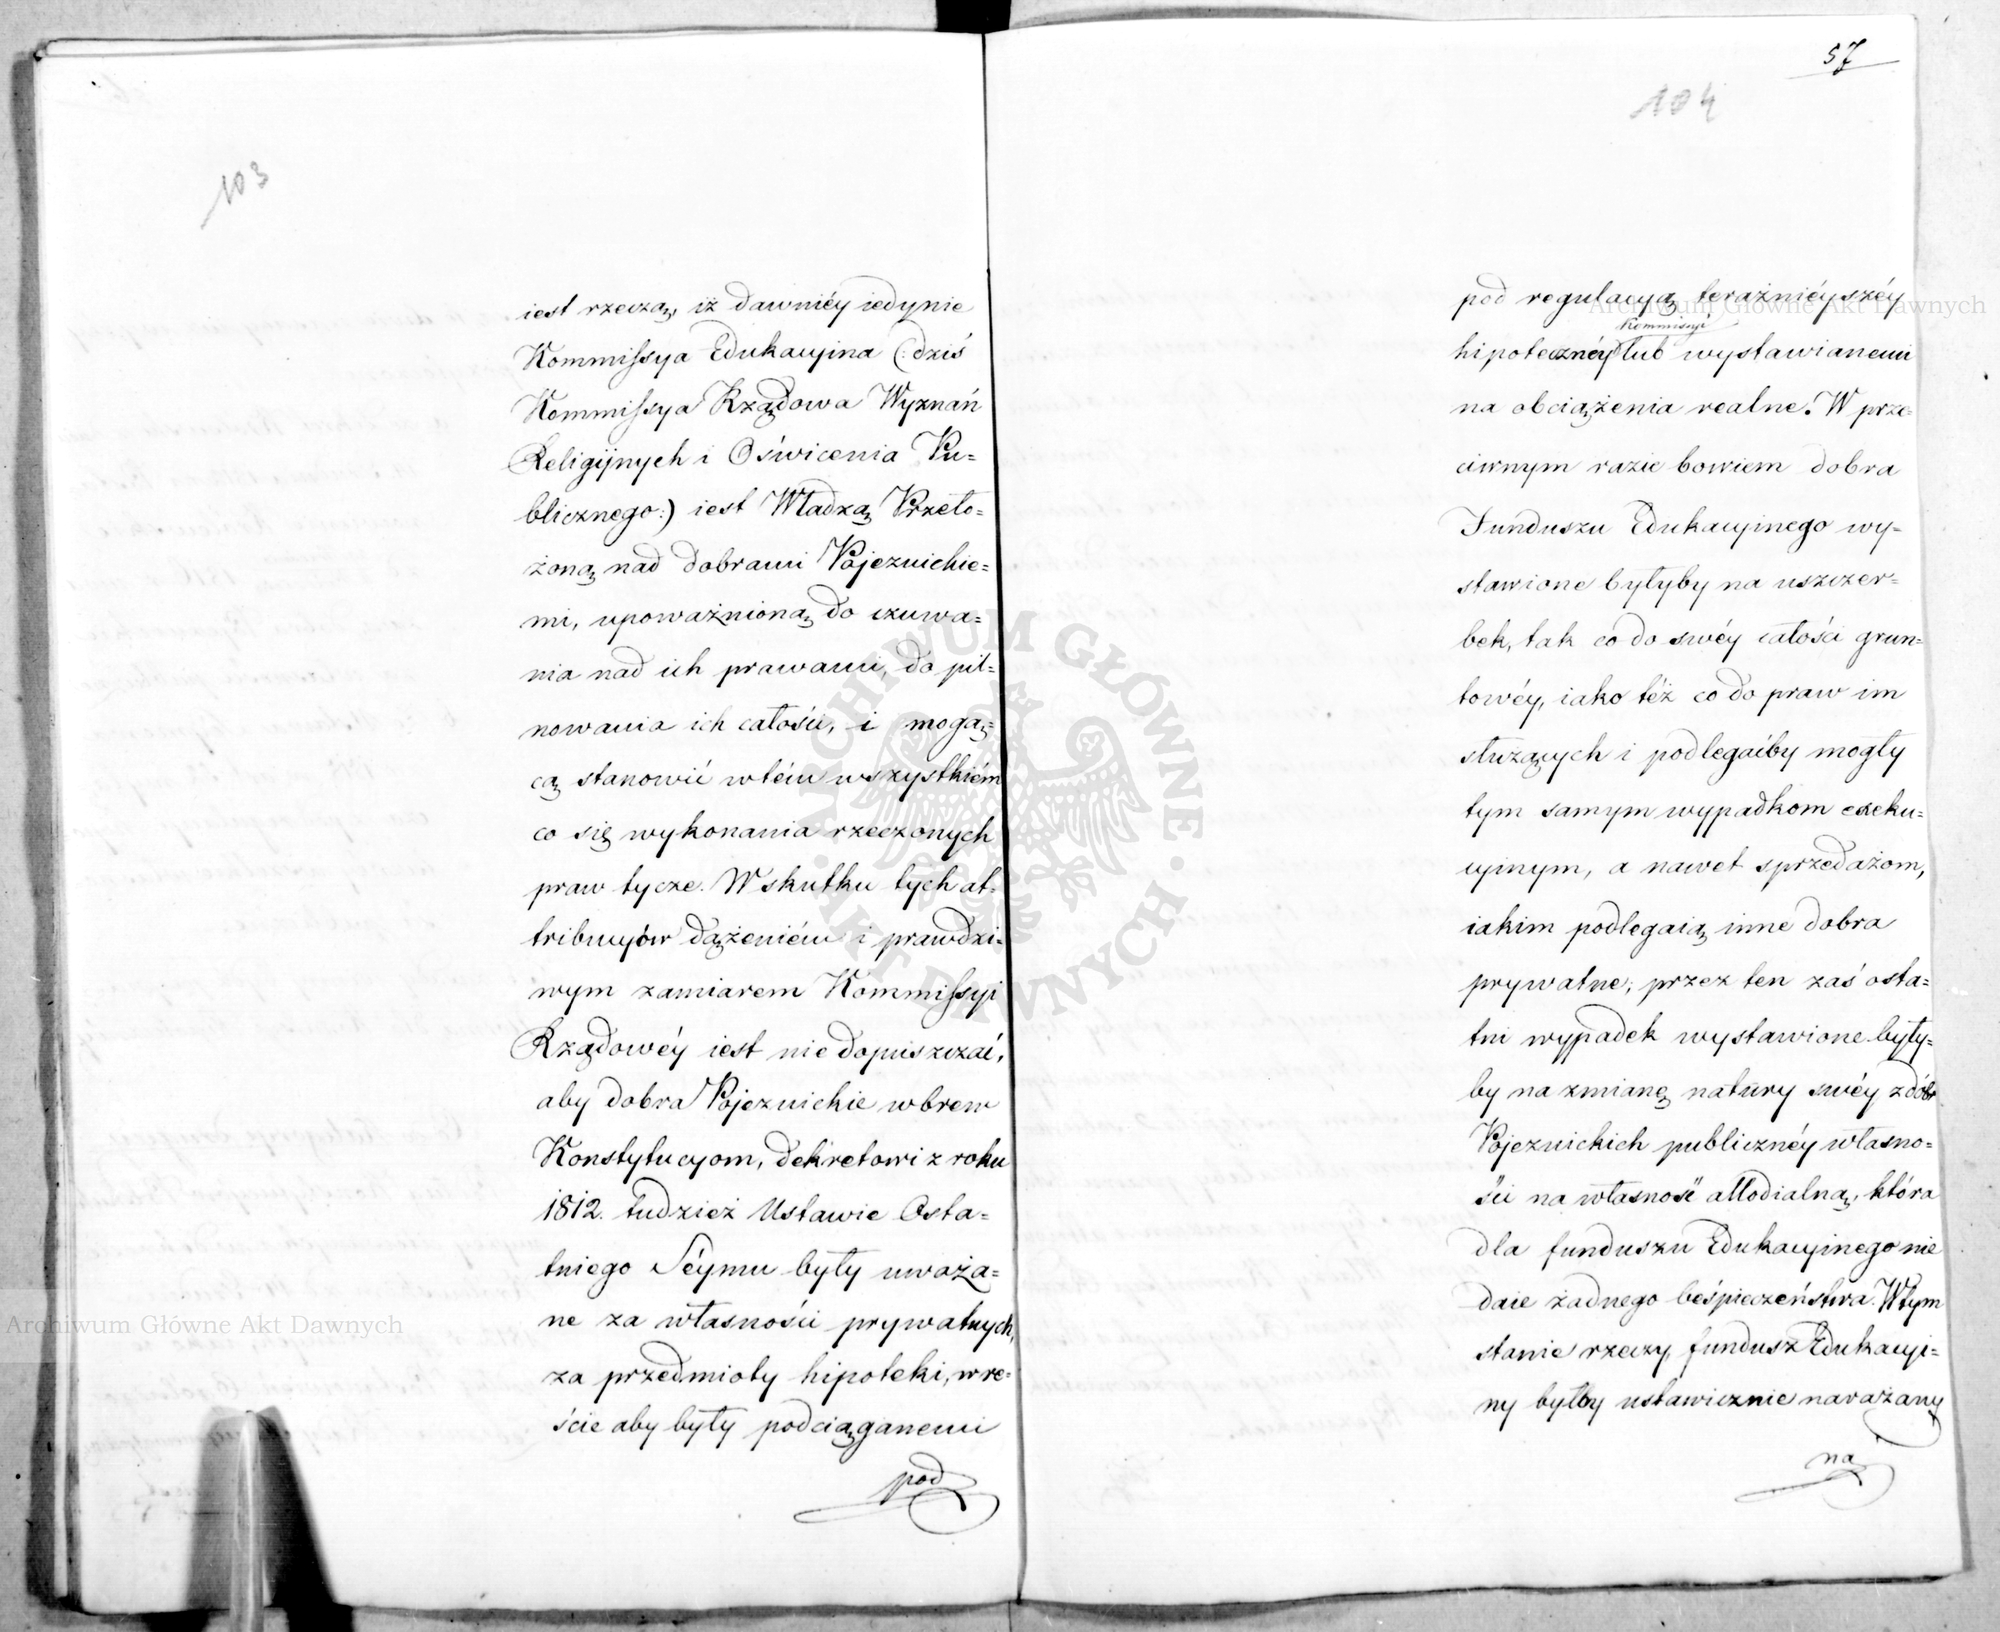 103
iest rzeczą, iż dawniéy iedynie
Kommissya Edukacyina (: dziś
Kommissya Rządowa Wyznań
Religijnych i Oświecenia Pu=
blicznego:) iest Władzą Przeło=
żoną nad dobrami Pojezuickie=
mi, upoważnioną do czuwa=
nia nad ich prawami, do pil=
nowania ich całości, i mogą=
cą stanowić w tém wszystkiém
co się wykonania rzeczonych
praw tycze. W skutku tych at=
tribucyów dążeniém i prawdzi=
wym zamiarem Kommissyi
Rządowéy iest nie dopuszczać,
aby dobra Pojezuickie wbrew
Konstytucyom, dekretowi z roku
1812. tudzież Ustawie Osta=
tniego Séymu były uważa=
ne za własności prywatnych,
za przedmioty hipoteki, wre=
ście aby były podciąganemi
pod
57
104
pod regulacyą teraźniéyszéy
Kommissyi
hipotecznéy lub wystawianemi
na obciążenia realne. W prze=
ciwnym razie bowiem dobra
Funduszu Edukacyinego wy=
stawione byłyby na uszczer=
bek, tak co do swéy całości grun=
towéy, iako téż co do praw im
służących i podlegaćby mogły
tym samym wypadkom exeku=
cyinym, a nawet sprzedażom,
iakim podlegaią inne dobra
prywatne; przez ten zaś osta=
tni wypadek wystawione były=
by na zmianę natury swéy z dóbr
Pojezuickich publicznéy własno=
ści na własność allodialną, która
dla funduszu Edukacyinego nie
daie żadnego beśpieczeństwa. W tym
stanie rzeczy, fundusz Edukacyi=
ny byłby ustawicznie narażany
na
Archiwum Główne Akt Dawnych
Archiwum Główne Akt Dawnych
ARCHIWUM GŁÓWNE AKT DAWNYCH